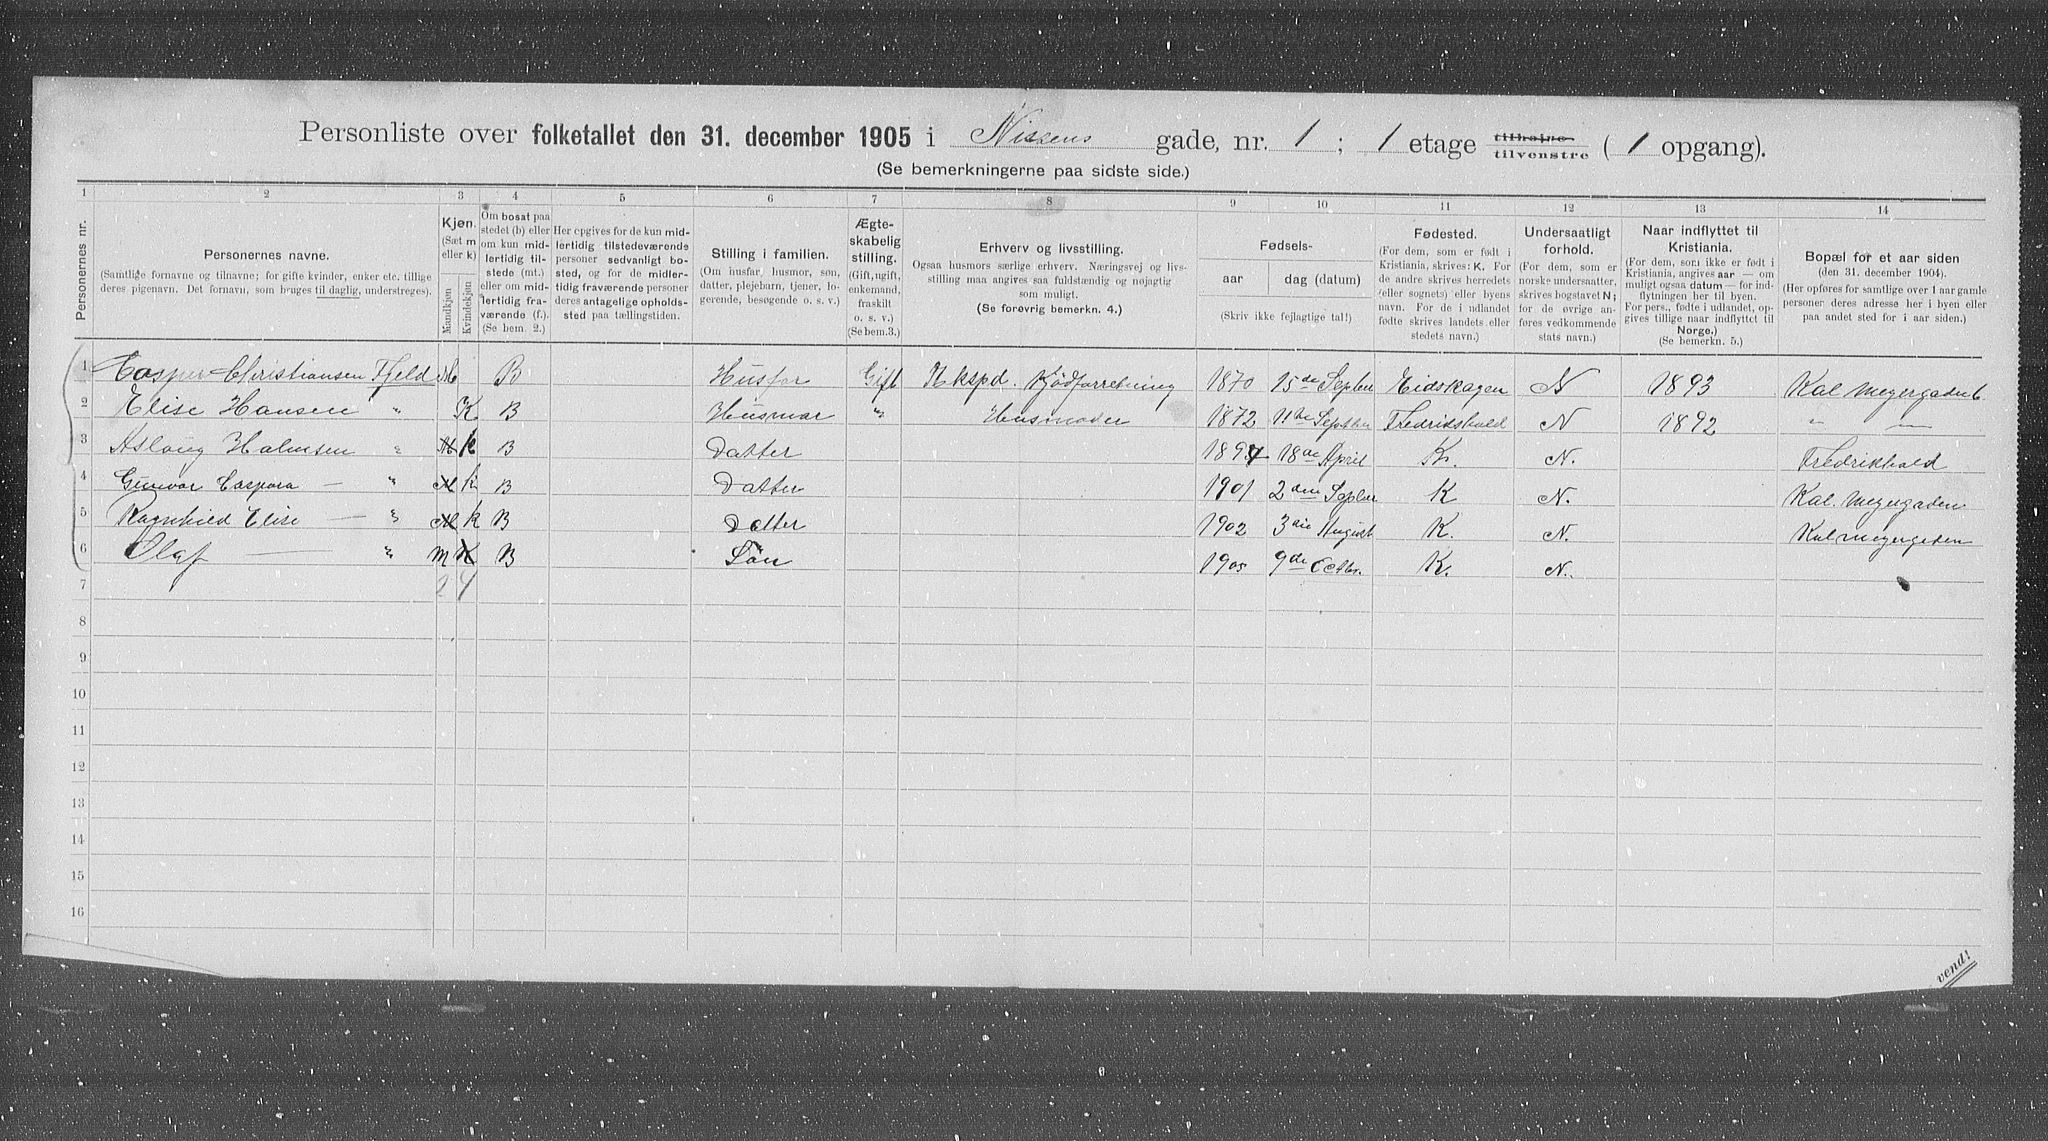 Personliste over folketallet den 31. december 1905 i Nissens gade, nr. 1 ; 1 etage tilhøire tilvenstre ( 1 opgang).
(Se bemerkningerne paa sidste side.)
1 2 3 4 5 6 7 8 9 10 11 12 13 14
Personernes nr.
Personernes navne.
(Samtlige fornavne og tilnavne; for gifte kvinder, enker etc. tillige
deres pigenavn. Det fornavn, som bruges til daglig, understreges).
Kjøn.
(Sæt m
eller k)
Mandkjøn
Kvindekjøn
Om bosat paa
stedet (b) eller
om kun mid-
lertidig til-
stede (mt.)
eller om mid-
lertidig fra-
værende (f.).
(Se bem. 2.)
Her opgives for de kun mid-
lertidig tilstedeværende
personer sedvanligt bo-
sted, og for de midler-
tidig fraværende personer
deres antagelige opholds-
sted paa tællingstiden.
Stilling i familien.
(Om husfar, husmor, søn,
datter, plejebarn, tjener, lo-
gerende, besøgende o. s. v.)
Ægte-
skabelig
stilling.
(Gift, ugift,
enkemand,
fraskilt
o. s. v.)
(Se bem.3.)
Erhverv og livsstilling.
Ogsaa husmors særlige erhverv. Næringsvej og livs-
stilling maa angives saa fuldstændig og nøjagtig
som muligt.
(Se forøvrig bemerkn. 4.)
Fødsels-
aar
dag (datum)
(Skriv ikke fejlagtige tal!)
Fødested.
(For dem, som er født i
Kristiania, skrives: K. For
de andre skrives herredets
(eller sognets) eller byens
navn. For de i udlandet
fødte skrives landets eller
stedets navn.)
Undersaatligt
forhold.
(For dem, som er
norske undersaatter,
skrives bogstavet N;
for de øvrige an-
føres vedkommende
stats navn.)
Naar indflyttet til
Kristiania.
(For dem, som ikke er født i
Kristiania, angives aar — om
muligt ogsaa datum — for ind-
flytningen her til byen.
For pers., fødte i udlandet, op-
gives tillige naar indflyttet til
Norge.)
(Se bemerkn. 5.)
Bopæl for et aar siden
(den 31. december 1904).
(Her opføres for samtlige over 1 aar gamle
personer deres adresse her i byen eller
paa andet sted for i aar siden.)
1 Casper Christiansen Fjeld M B Husfar Gift Ekspd. Kjödforretning 1870 15de Septbr Eidskogen N 1893 Kal Meyergaden 6
2 Elise Hansen " K B Husmor " Husmoder 1872 11te Septbr Fredrikshald N 1892 " —
3 Aslaug Halmsen " M k B Datter 1897 18de April K. N. Fredrikhald
4 Gunvor Caspara — " M k B Datter 1901 2den Septbr K N. Kal. Meyergaden
5 Ragnhild Elise — " M k B Datter 1902 3die August K. N. Kal Meyergaden
6 Olaf — " M K B Sön 1905 9de Octbr. K. N.
7 2 4
8
9
10
11
12
13
14
15
16
vend!